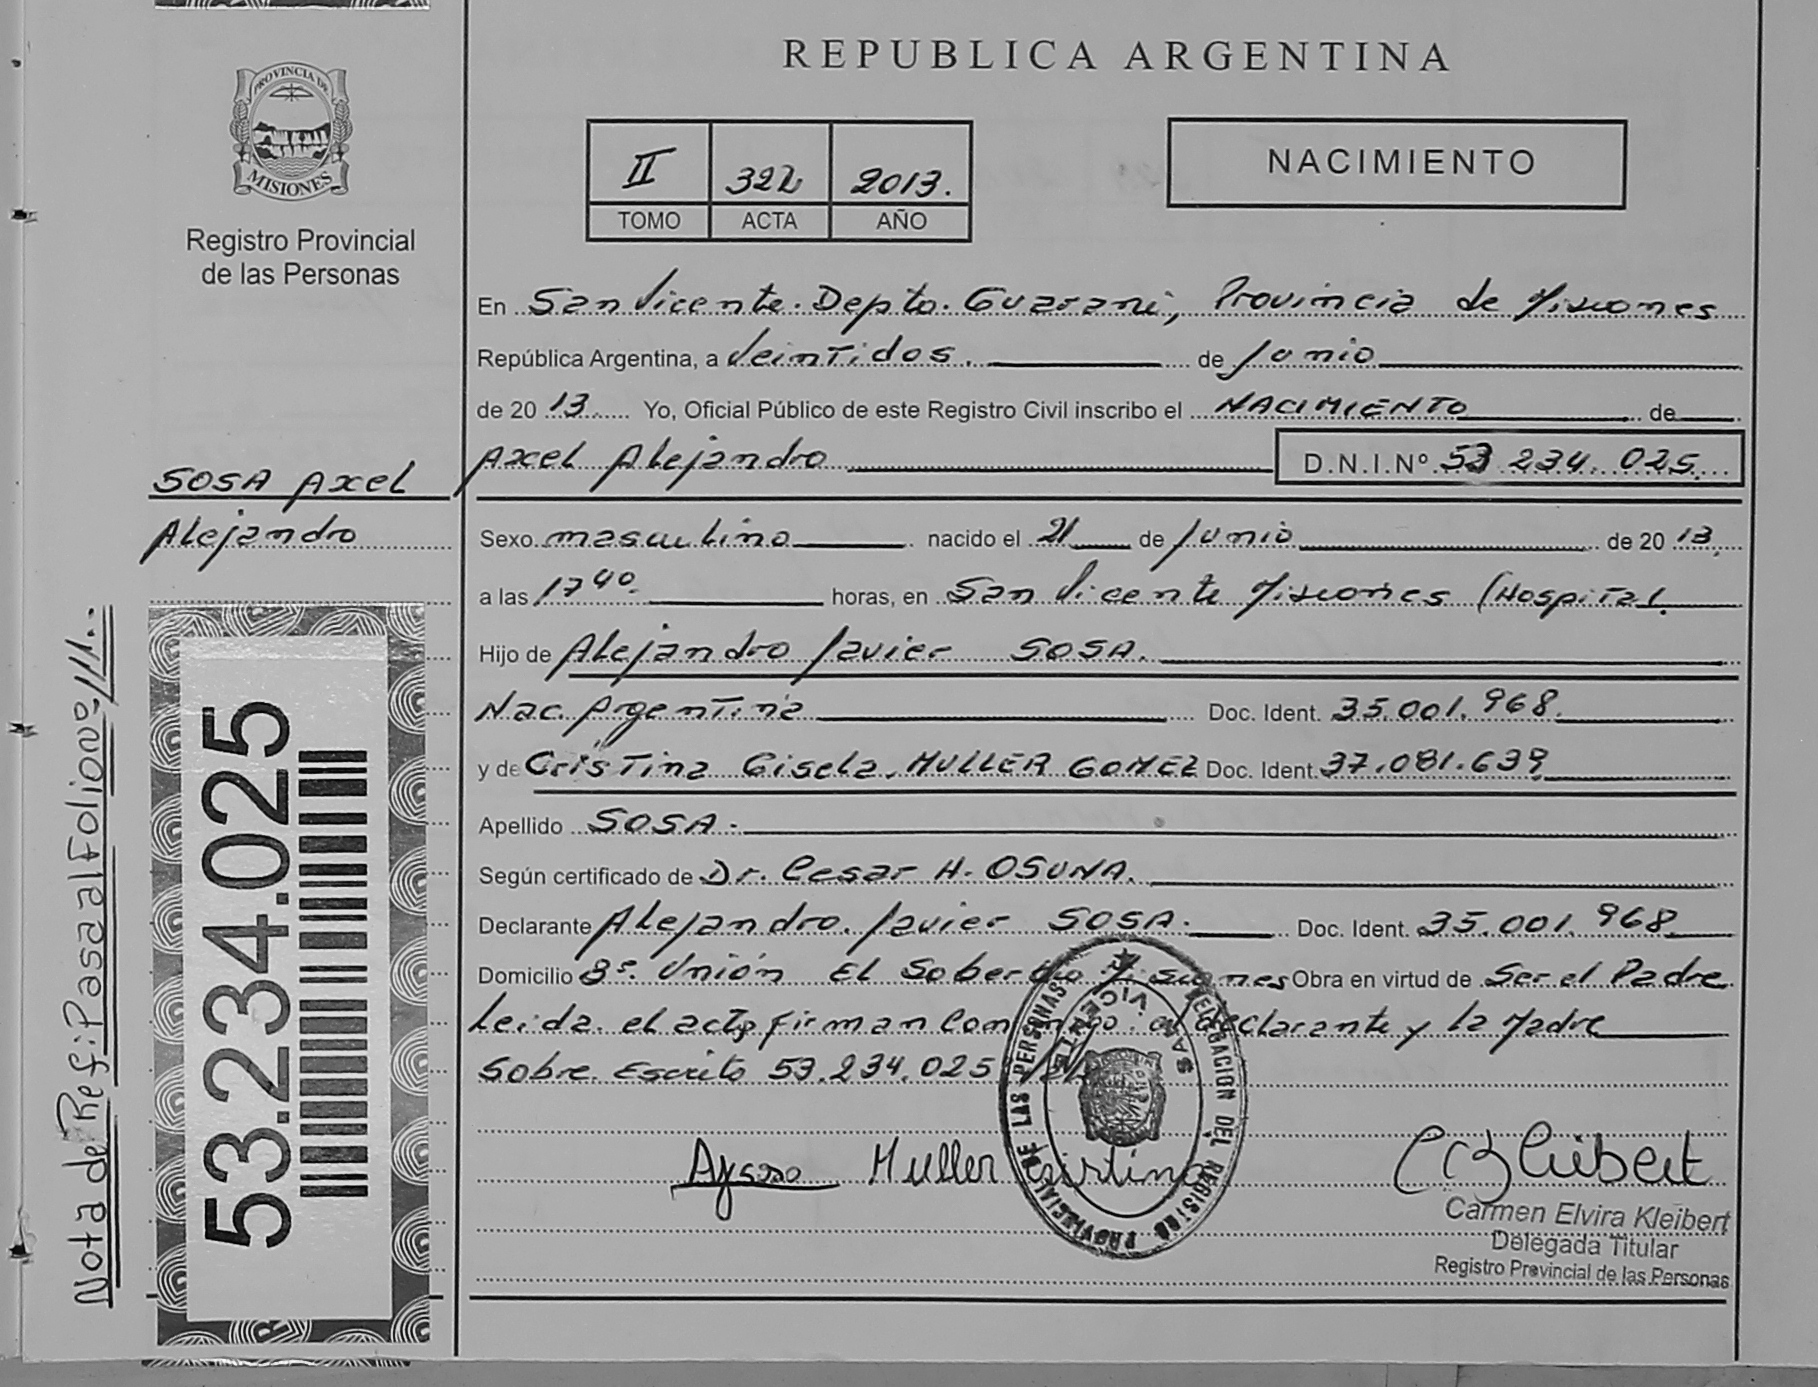 REPUBLICA ARGENTINA
PROVINCIA DE
MISIONES
Registro Provincial
de las Personas
II 322 2013.
TOMO ACTA AÑO
NACIMIENTO
En San Vicente. Depto. Guarani, Provincia de Misiones
República Argentina, a Veintidos. de Junio
de 20 13 Yo, Oficial Público de este Registro Civil inscribo el NACIMIENTO de
Axel Alejandro D.N.I.Nº 53 234. 025
SOSA Axel
Alejandro
Sexo masculino nacido el 21 de Junio de 20 13
a las 17 40. horas, en San Vicente Misiones (Hospital
Hijo de Alejandro Javier SOSA.
Nac. Argentina Doc. Ident. 35.001.968.
y de Cristina Gisela MULLER GOMEZ Doc. Ident. 37.081.639
Apellido SOSA.
Según certificado de Dr. Cesar H. OSUNA.
Declarante Alejandro Javier SOSA. Doc. Ident. 35.001.968
Domicilio Bº. Unión El Soberbio Misiones Obra en virtud de Ser el Padre
Leida el acta firman Conmigo el declarante y la Madre
Sobre Escrito 53.234.025
Muller Cristina
Carmen Elvira Kleibert
Delegada Titular
Registro Provincial de las Personas
DELEGACION DEL REGISTRO PROVINCIAL DE LAS PERSONAS
SAN VICENTE
53.234.025
Nota de Ref: Pasa al Folio nº 111..